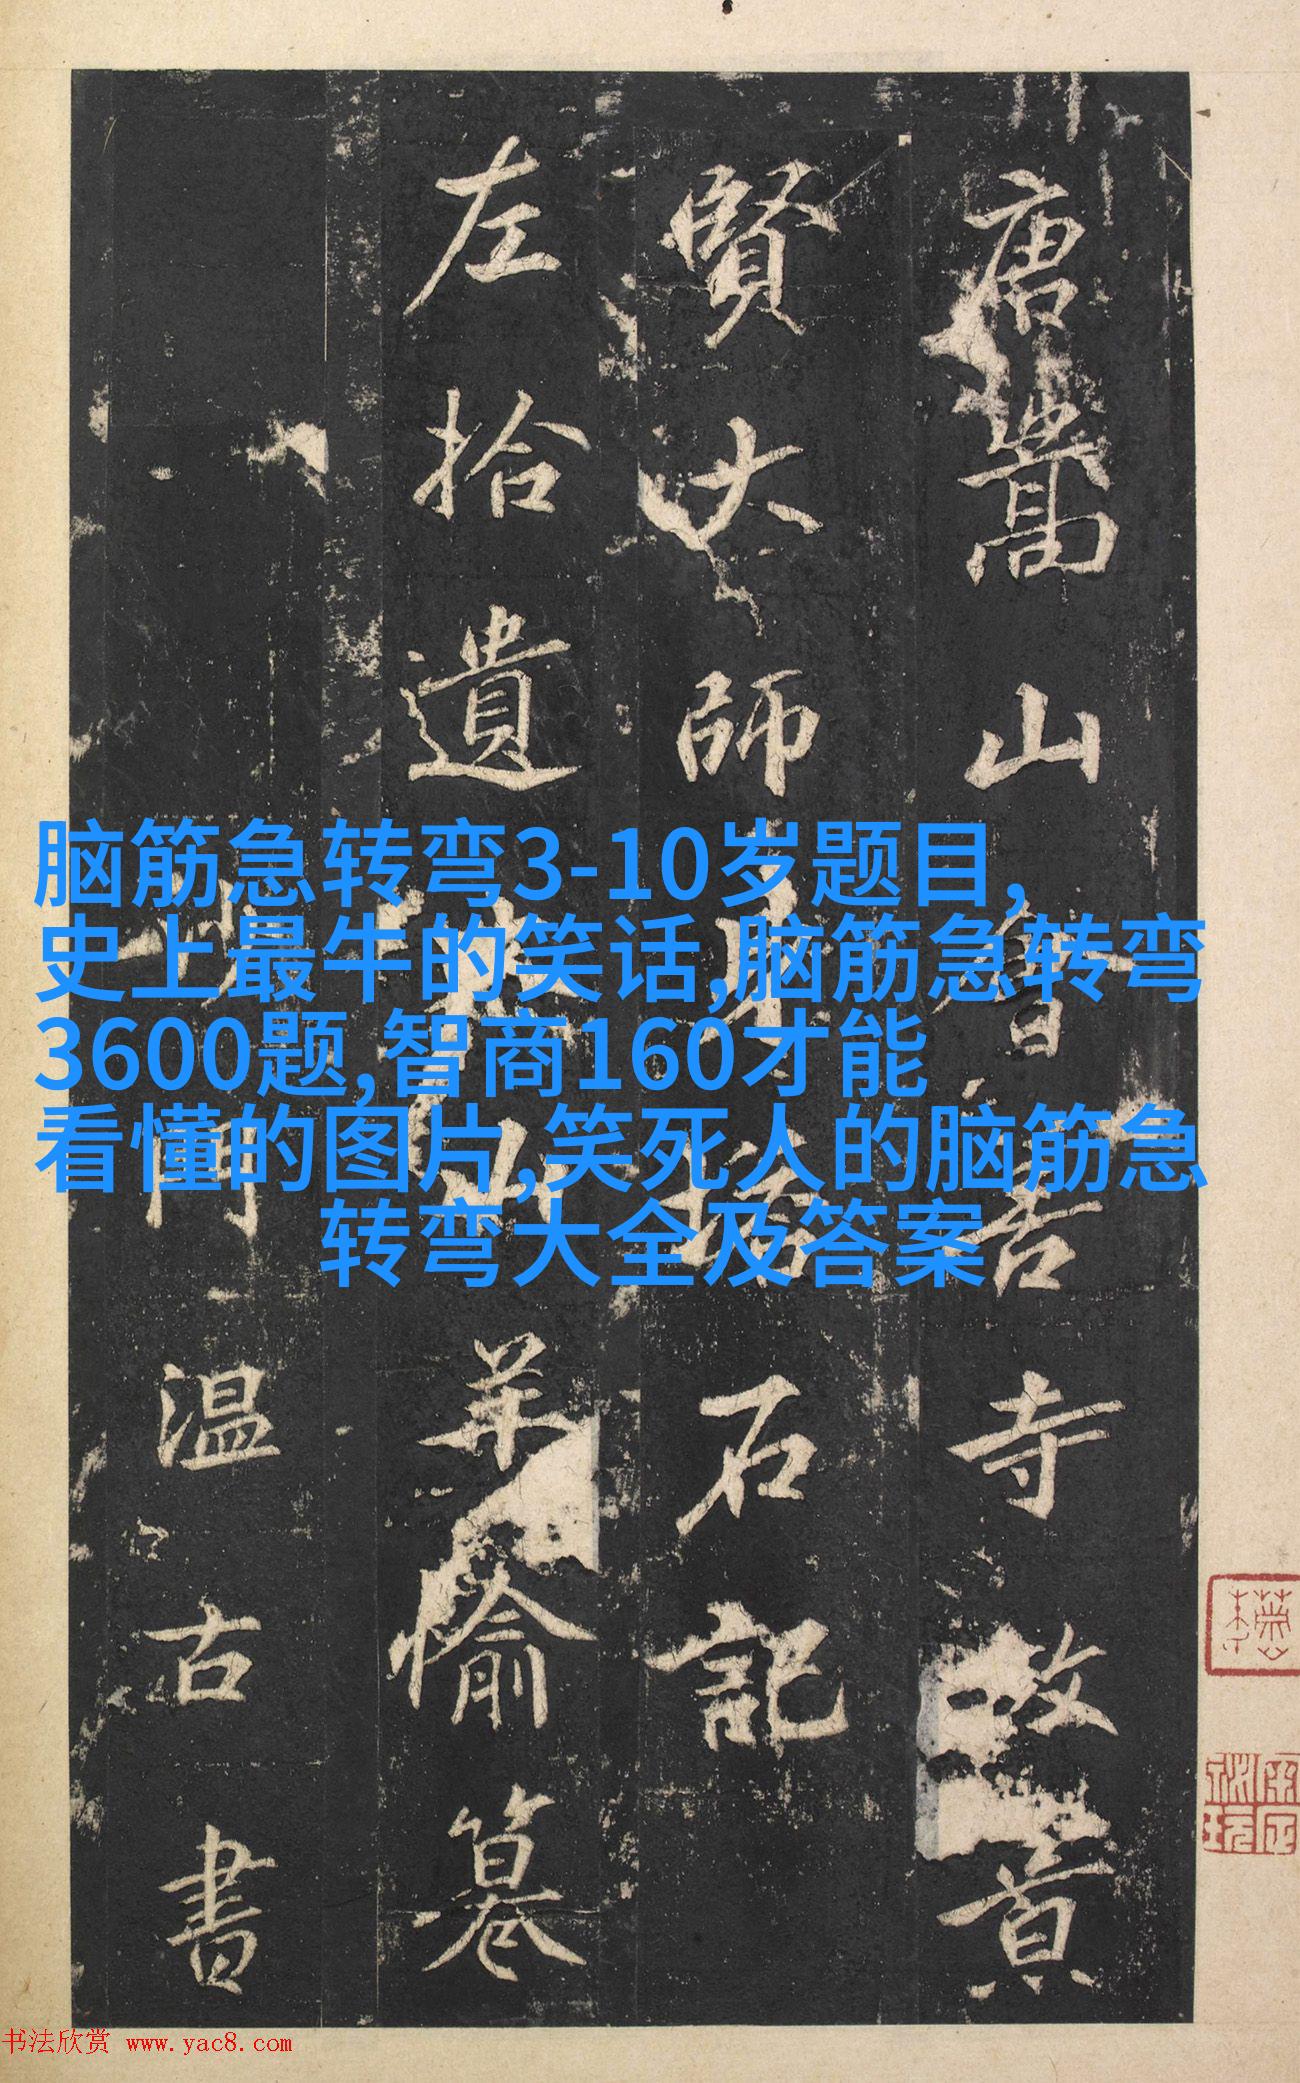 唐嵩山會善寺故景
賢大師身塔石記
左拾遺太山羊愉纂
沙門溫古書
脑筋急转弯3-10岁题目,
史上最牛的笑话,脑筋急转弯
3600题,智商160才能
看懂的图片,笑死人的脑筋急
转弯大全及答案
书法欣赏 www.yac8.com